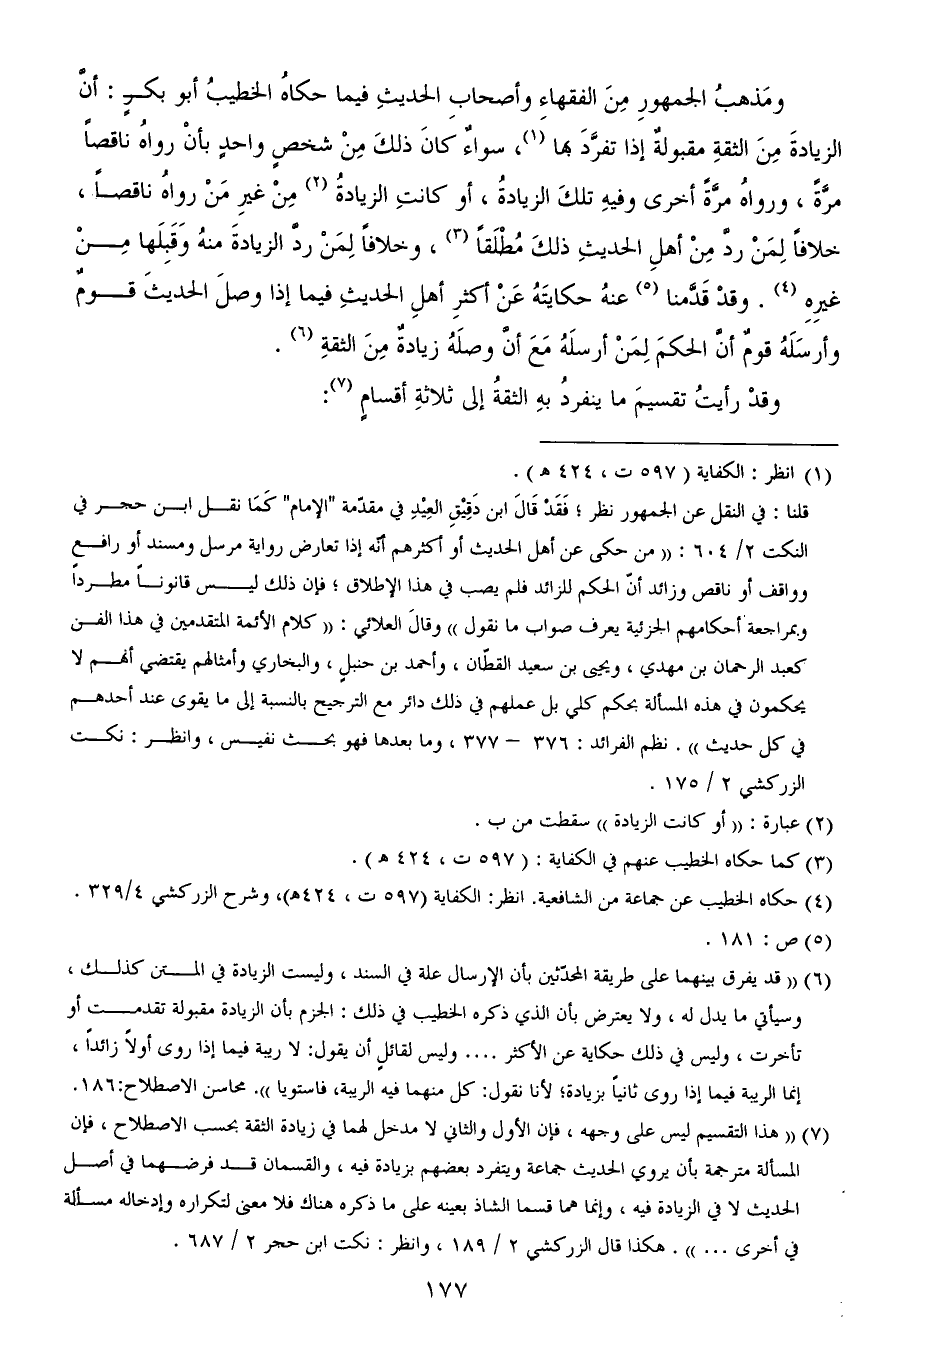 ومَذهبُ الجمهورِ مِنَ الفقهاءِ وأصحابِ الحديثِ فيما حكاهُ الخطيبُ أبو بكـرٍ : أنَّ
الزيادةَ مِنَ الثقةِ مقبولةٌ إذا تفرَّدَ بها (١)، سواءٌ كانَ ذلكَ مِنْ شخصٍ واحدٍ بأنْ رواهُ ناقصاً
مرَّةً ، ورواهُ مرَّةً أخرى وفيهِ تلكَ الزيادةُ ، أو كانتِ الزيادةُ (٢) مِنْ غيرِ مَنْ رواهُ ناقصـاً ،
خلافاً لِمَنْ ردَّ مِنْ أهلِ الحديثِ ذلكَ مُطْلَقاً (٣) ، وخلافاً لِمَنْ ردَّ الزيادةَ منهُ وَقَبِلَها مِـــنْ
غيرِهِ (٤) . وقدْ قَدَّمنا (٥) عنهُ حكايتَهُ عَنْ أكثرِ أهلِ الحديثِ فيما إذا وصلَ الحديثَ قـــومٌ
وأرسَلَهُ قومٌ أنَّ الحكمَ لِمَنْ أرسلَهُ مَعَ أنَّ وصلَهُ زيادةٌ مِنَ الثقةِ (٦) .
وقدْ رأيتُ تقسيمَ ما ينفردُ بهِ الثقةُ إلى ثلاثةِ أقسامٍ (٧):
(١) انظر : الكفاية ( ٥٩٧ ت ، ٤٢٤ هـ ) .
قلنا : في النقل عن الجمهور نظر ؛ فَقَدْ قَالَ ابن دَقِيْقِ العِيْدِ في مقدّمة "الإمام" كَمَا نقـل ابـن حجـر في
النكت ٢/ ٦٠٤ : (( من حكى عن أهل الحديث أو أكثرهم أنّه إذا تعارض رواية مرسل ومسند أو رافـع
وواقف أو ناقص وزائد أنّ الحكم للزائد فلم يصب في هذا الإطلاق ؛ فإن ذلك ليـــس قانونـاً مطـرداً
وبمراجعة أحكامهم الجزئية يعرف صواب ما نقول )) وقالَ العلائي : (( كلام الأئمة المتقدمين في هذا الفـن
كعبد الرحمان بن مهدي ، ويحيى بن سعيد القطّان ، وأحمد بن حنبلٍ ، والبخاري وأمثالهم يقتضي أنهـم لا
يحكمون في هذه المسألة بحكم كلي بل عملهم في ذلك دائر مع الترجيح بالنسبة إلى ما يقوى عند أحدهـم
في كل حديث )) . نظم الفرائد : ٣٧٦ – ٣٧٧ ، وما بعدها فهو بحــث نفيس ، وانظـر : نكـت
الزركشي ٢ / ١٧٥ .
(٢) عبارة : (( أو كانت الزيادة )) سقطت من ب .
(٣) كما حكاه الخطيب عنهم في الكفاية : ( ٥٩٧ ت ، ٤٢٤ هـ ) .
(٤) حكاه الخطيب عن جماعة من الشافعية. انظر: الكفاية (٥٩٧ ت ، ٤٢٤هـ)، وشرح الزركشي ٣٢٩/٤ .
(٥) ص : ١٨١ .
(٦) (( قد يفرق بينهما على طريقة المحدّثين بأن الإرسال علة في السند ، وليست الزيادة في المـــتن كذلـك ،
وسيأتي ما يدل له ، ولا يعترض بأن الذي ذكره الخطيب في ذلك : الجزم بأن الزيادة مقبولة تقدمــت أو
تأخرت ، وليس في ذلك حكاية عن الأكثر .... وليس لقائلٍ أن يقول: لا ريبة فيما إذا روى أولاً زائداً ،
إنما الريبة فيما إذا روى ثانياً بزيادة؛ لأنا نقول: كل منهما فيه الريبة، فاستويا )). محاسن الاصطلاح:١٨٦.
(٧) (( هذا التقسيم ليس على وجهه ، فإن الأول والثاني لا مدخل لهما في زيادة الثقة بحسب الاصطلاح ، فإن
المسألة مترجمة بأن يروي الحديث جماعة ويتفرد بعضهم بزيادة فيه ، والقسمان قـد فرضـهما في أصـل
الحديث لا في الزيادة فيه ، وإنما هما قسما الشاذ بعينه على ما ذكره هناك فلا معنى لتكراره وإدخاله مسـألة
في أخرى ... )) . هكذا قال الزركشي ٢ / ١٨٩ ، وانظر : نكت ابن حجر ٢ / ٦٨٧ .
١٧٧